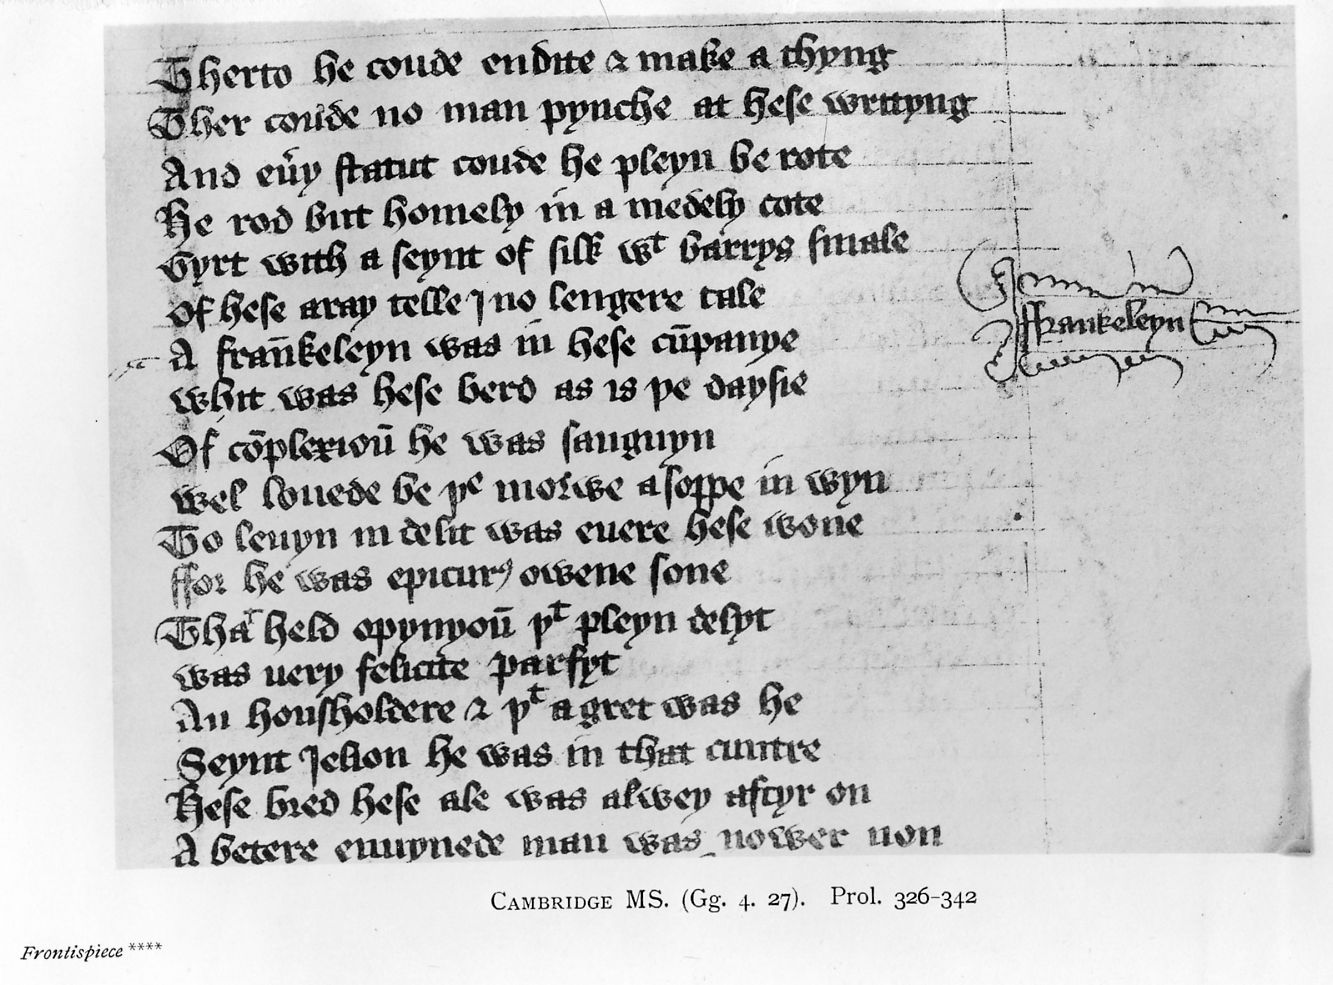 Therto he coude endite & make a thyng
Ther coude no man pynche at hese writyng
And eu̾y statut coude he pleyn be rote
He rod but homely in a medely cote
Gyrt with a seynt of silk wᵗ barrys smale
Of hese aray telle I no lengere tale
A fran̄keleyn was in hese cū̄panye
whit was hese berd as is þe daysie
Of cōplexioū he was sanguyn
wel louede he þᵉ morwe a soppe in wyn
To leuyn in delit was euere hese wone
ffor he was epicurꝰ owene sone
Thaᵗ held opynyoū þᵗ pleyn delyt
was uery felicite parfyt
An housholdere & þᵗ a gret was he
Seynt Jelion he was in that cuntre
Hese bred hese ale was alwey aftyr on
A betere enuynede man was nower non
ffrankeleyn
CAMBRIDGE MS. (Gg. 4. 27). Prol. 326-342
Frontispiece ****